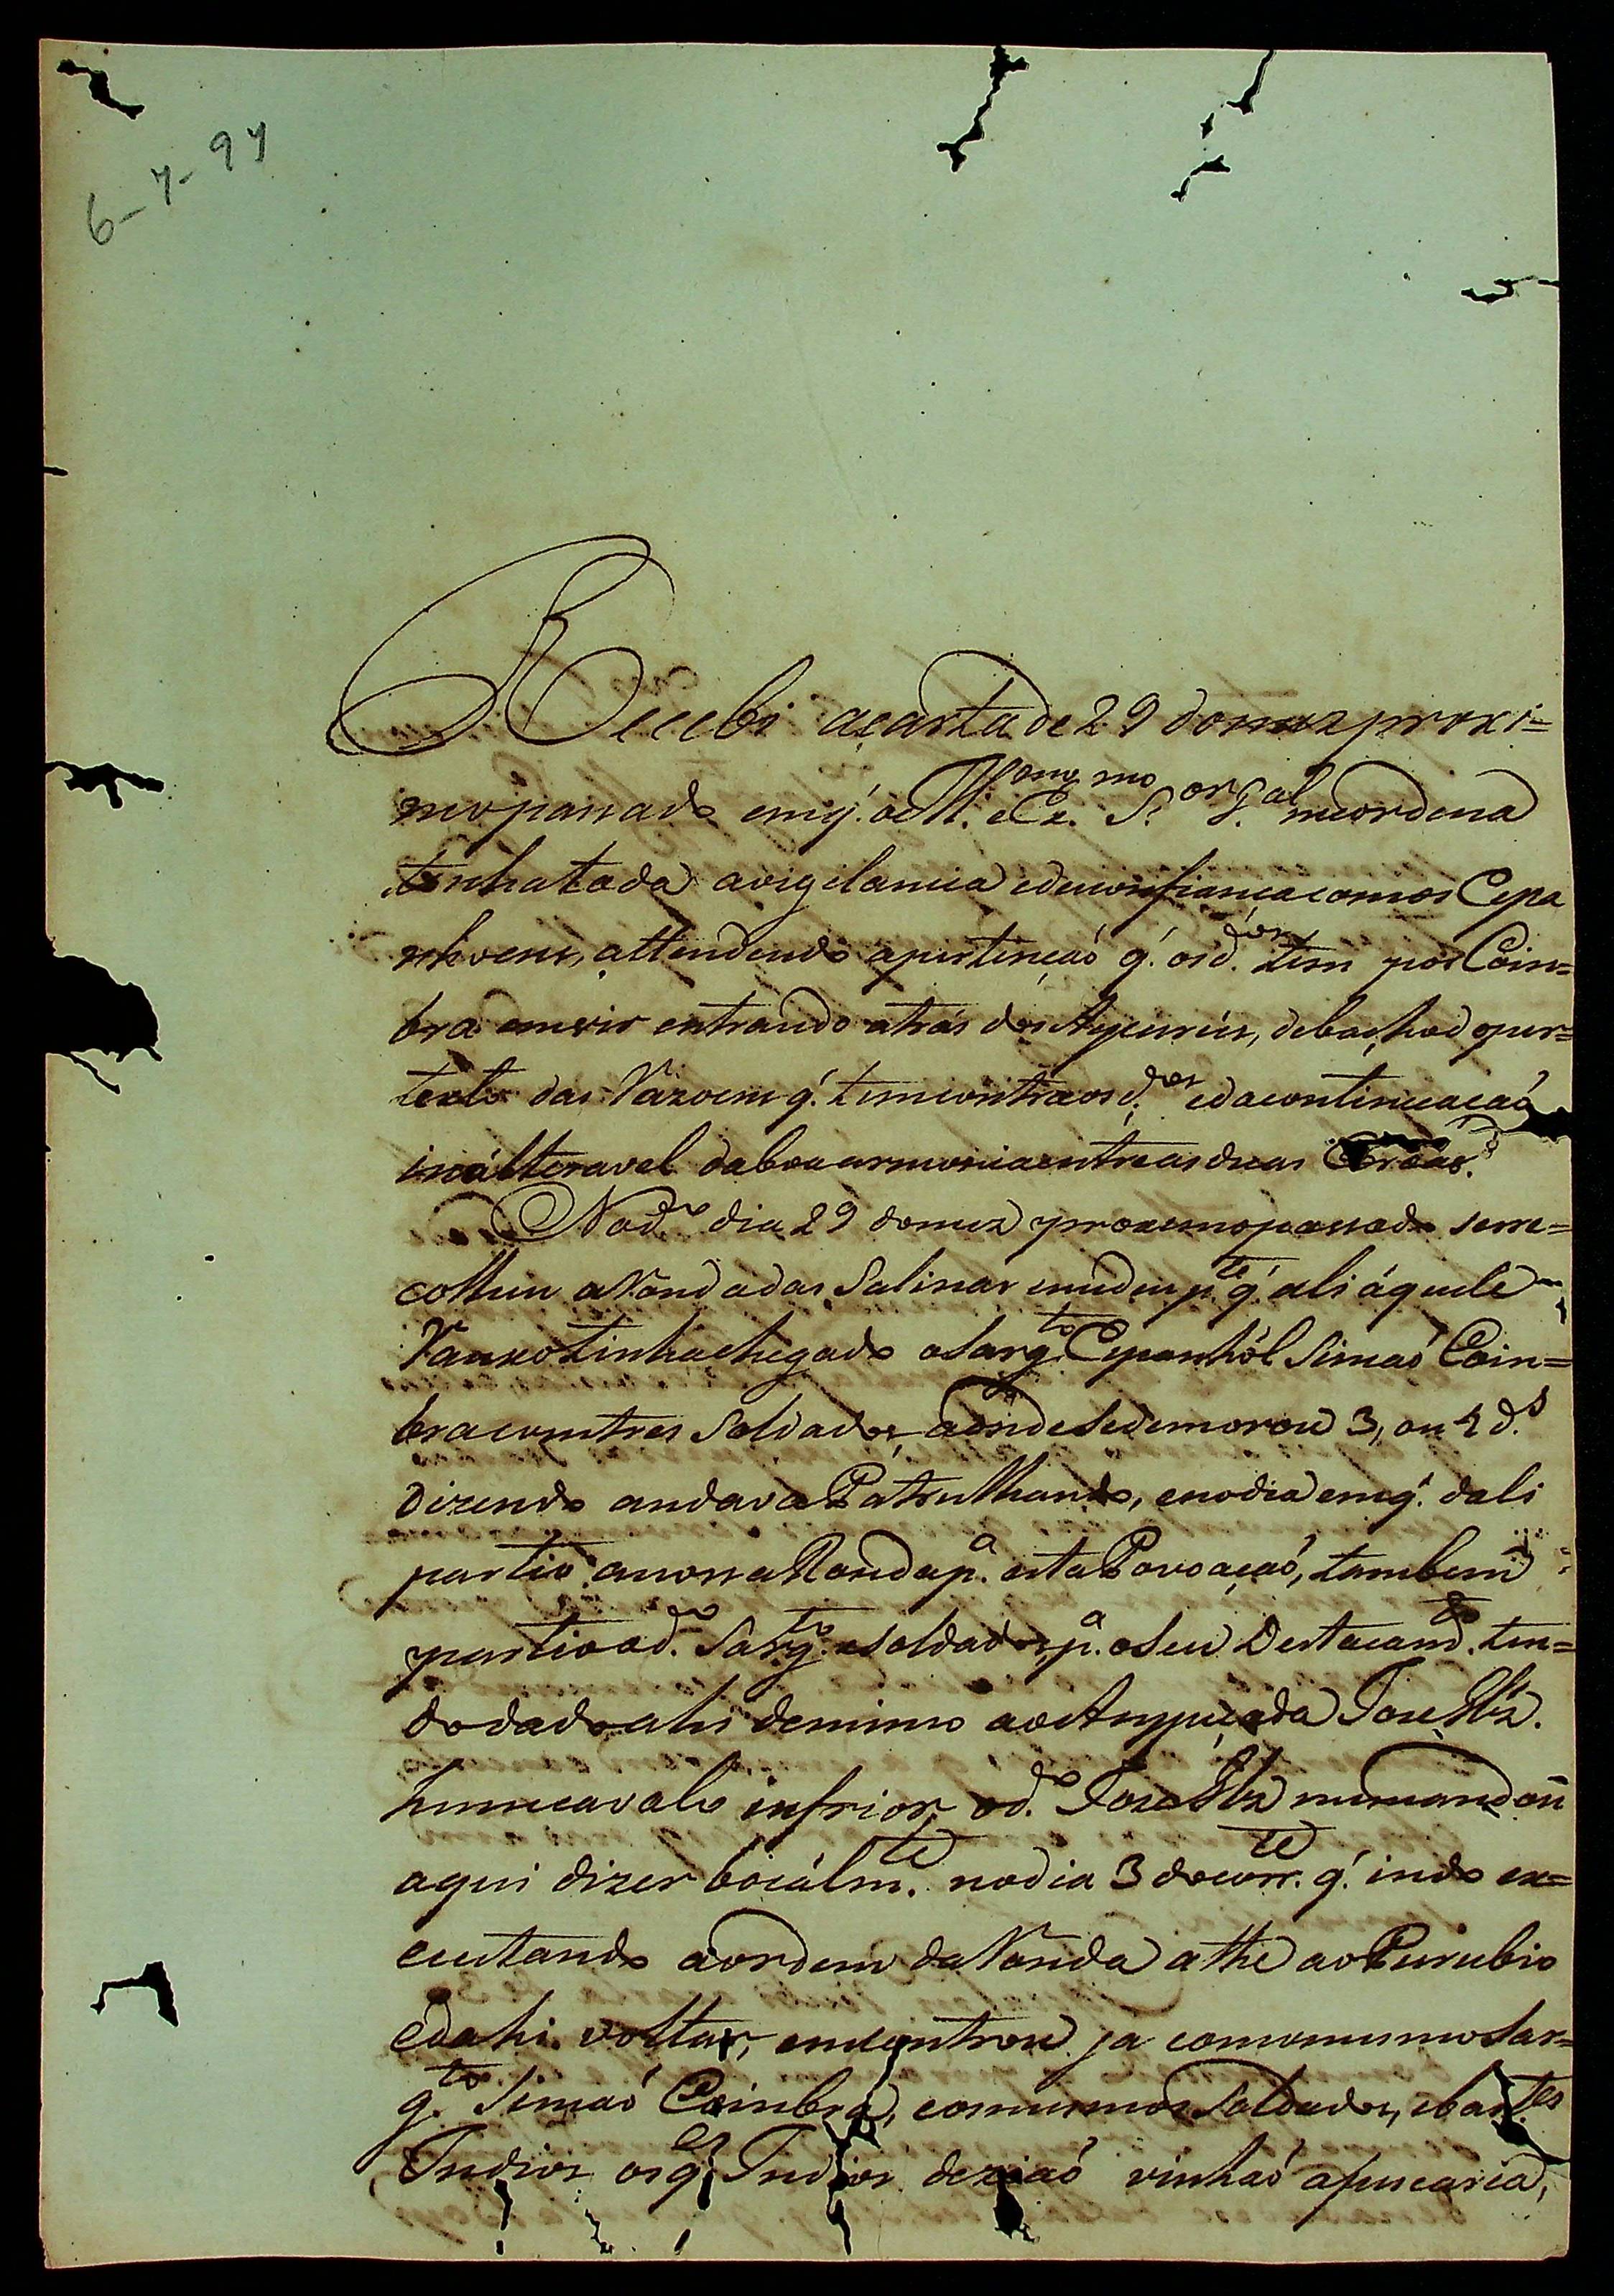 6-7-97
Recebi acarta de 29 domez proxi=
mopassado emq̃. oIll.mo eEx.mo S.or G.al meordena
tenhatoda avigilancia edesconfiancacomos Espa
nhoens, attendendo apertençaó q̃. osd.os tem por Coim=
bra emvir entrando atrás dos Aycurús, debachod oper=
texto das Razoens q̃. tem contraosd.os edacontinuacaó
inálteravel daboaarmoniaentreasduas Coroas.
Nod.o dia 29 domez proximopassado serre=
colheu aRondadas Salinas emedeup.te q̃ ali áquele
Ranxo tinhachegado oSarg.to Espanhól Simaó Coim=
bracomtres Soldados, aóndesedemorou 3, ou 4 d.s
dizendo andavaPatrulhando, enodia emq̃. dali
partio anossaRondap.a estaPovoaçaó, tambem
partiood.o Sarg.to esoldados, p.a oSeu Destacam.to ten=
dodadoahi demimo aoAnspeçada Joze Glz.
humcavalo infrior, od.o Joze Glz memandou
aqui dizer bocálm.te nodia 3 docorr.te q̃. indo ex=
cutando aordem daRonda athe aoPurubio
edahi voltar, encontrou ja comomesmoSar=
g.to Simaó Coimbra, comesmos Soldados, ebas.tes
Indios osq.es Indios deziaó vinhaó apescaria,